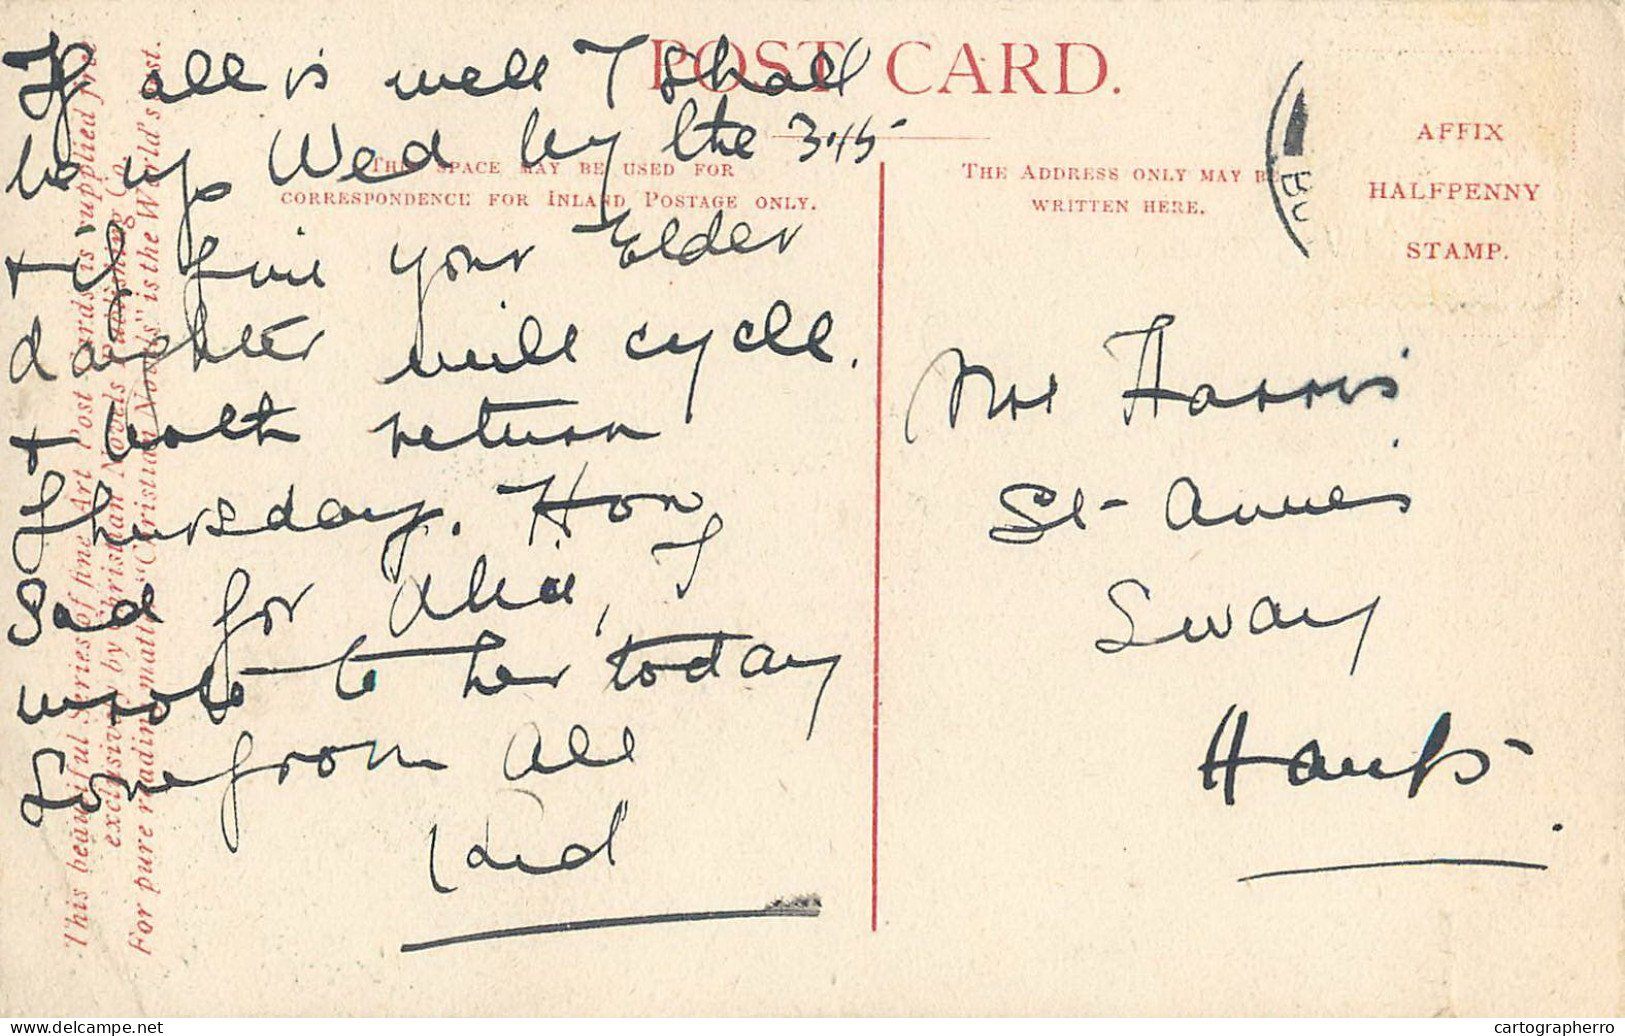 POST CARD.
THIS SPACE MAY BE USED FOR
CORRESPONDENCE FOR INLAND POSTAGE ONLY.
THE ADDRESS ONLY MAY BE
WRITTEN HERE.
AFFIX
HALFPENNY
STAMP.
If all is well I shall
be up Wed by the 3.15
+ if fine your Elder
daughter will cycle.
+ both return
Thursday. How
Sad for Alice, I
wrote to her today
Love from all
Mrs Harris
St Annes
Sway
Hants
This beautiful Series of fine Art Post Cards is supplied free
exclusively by Christian Novels Publishing Co.
For pure reading matter "Christian Novels" is the World's best.
cartographerro